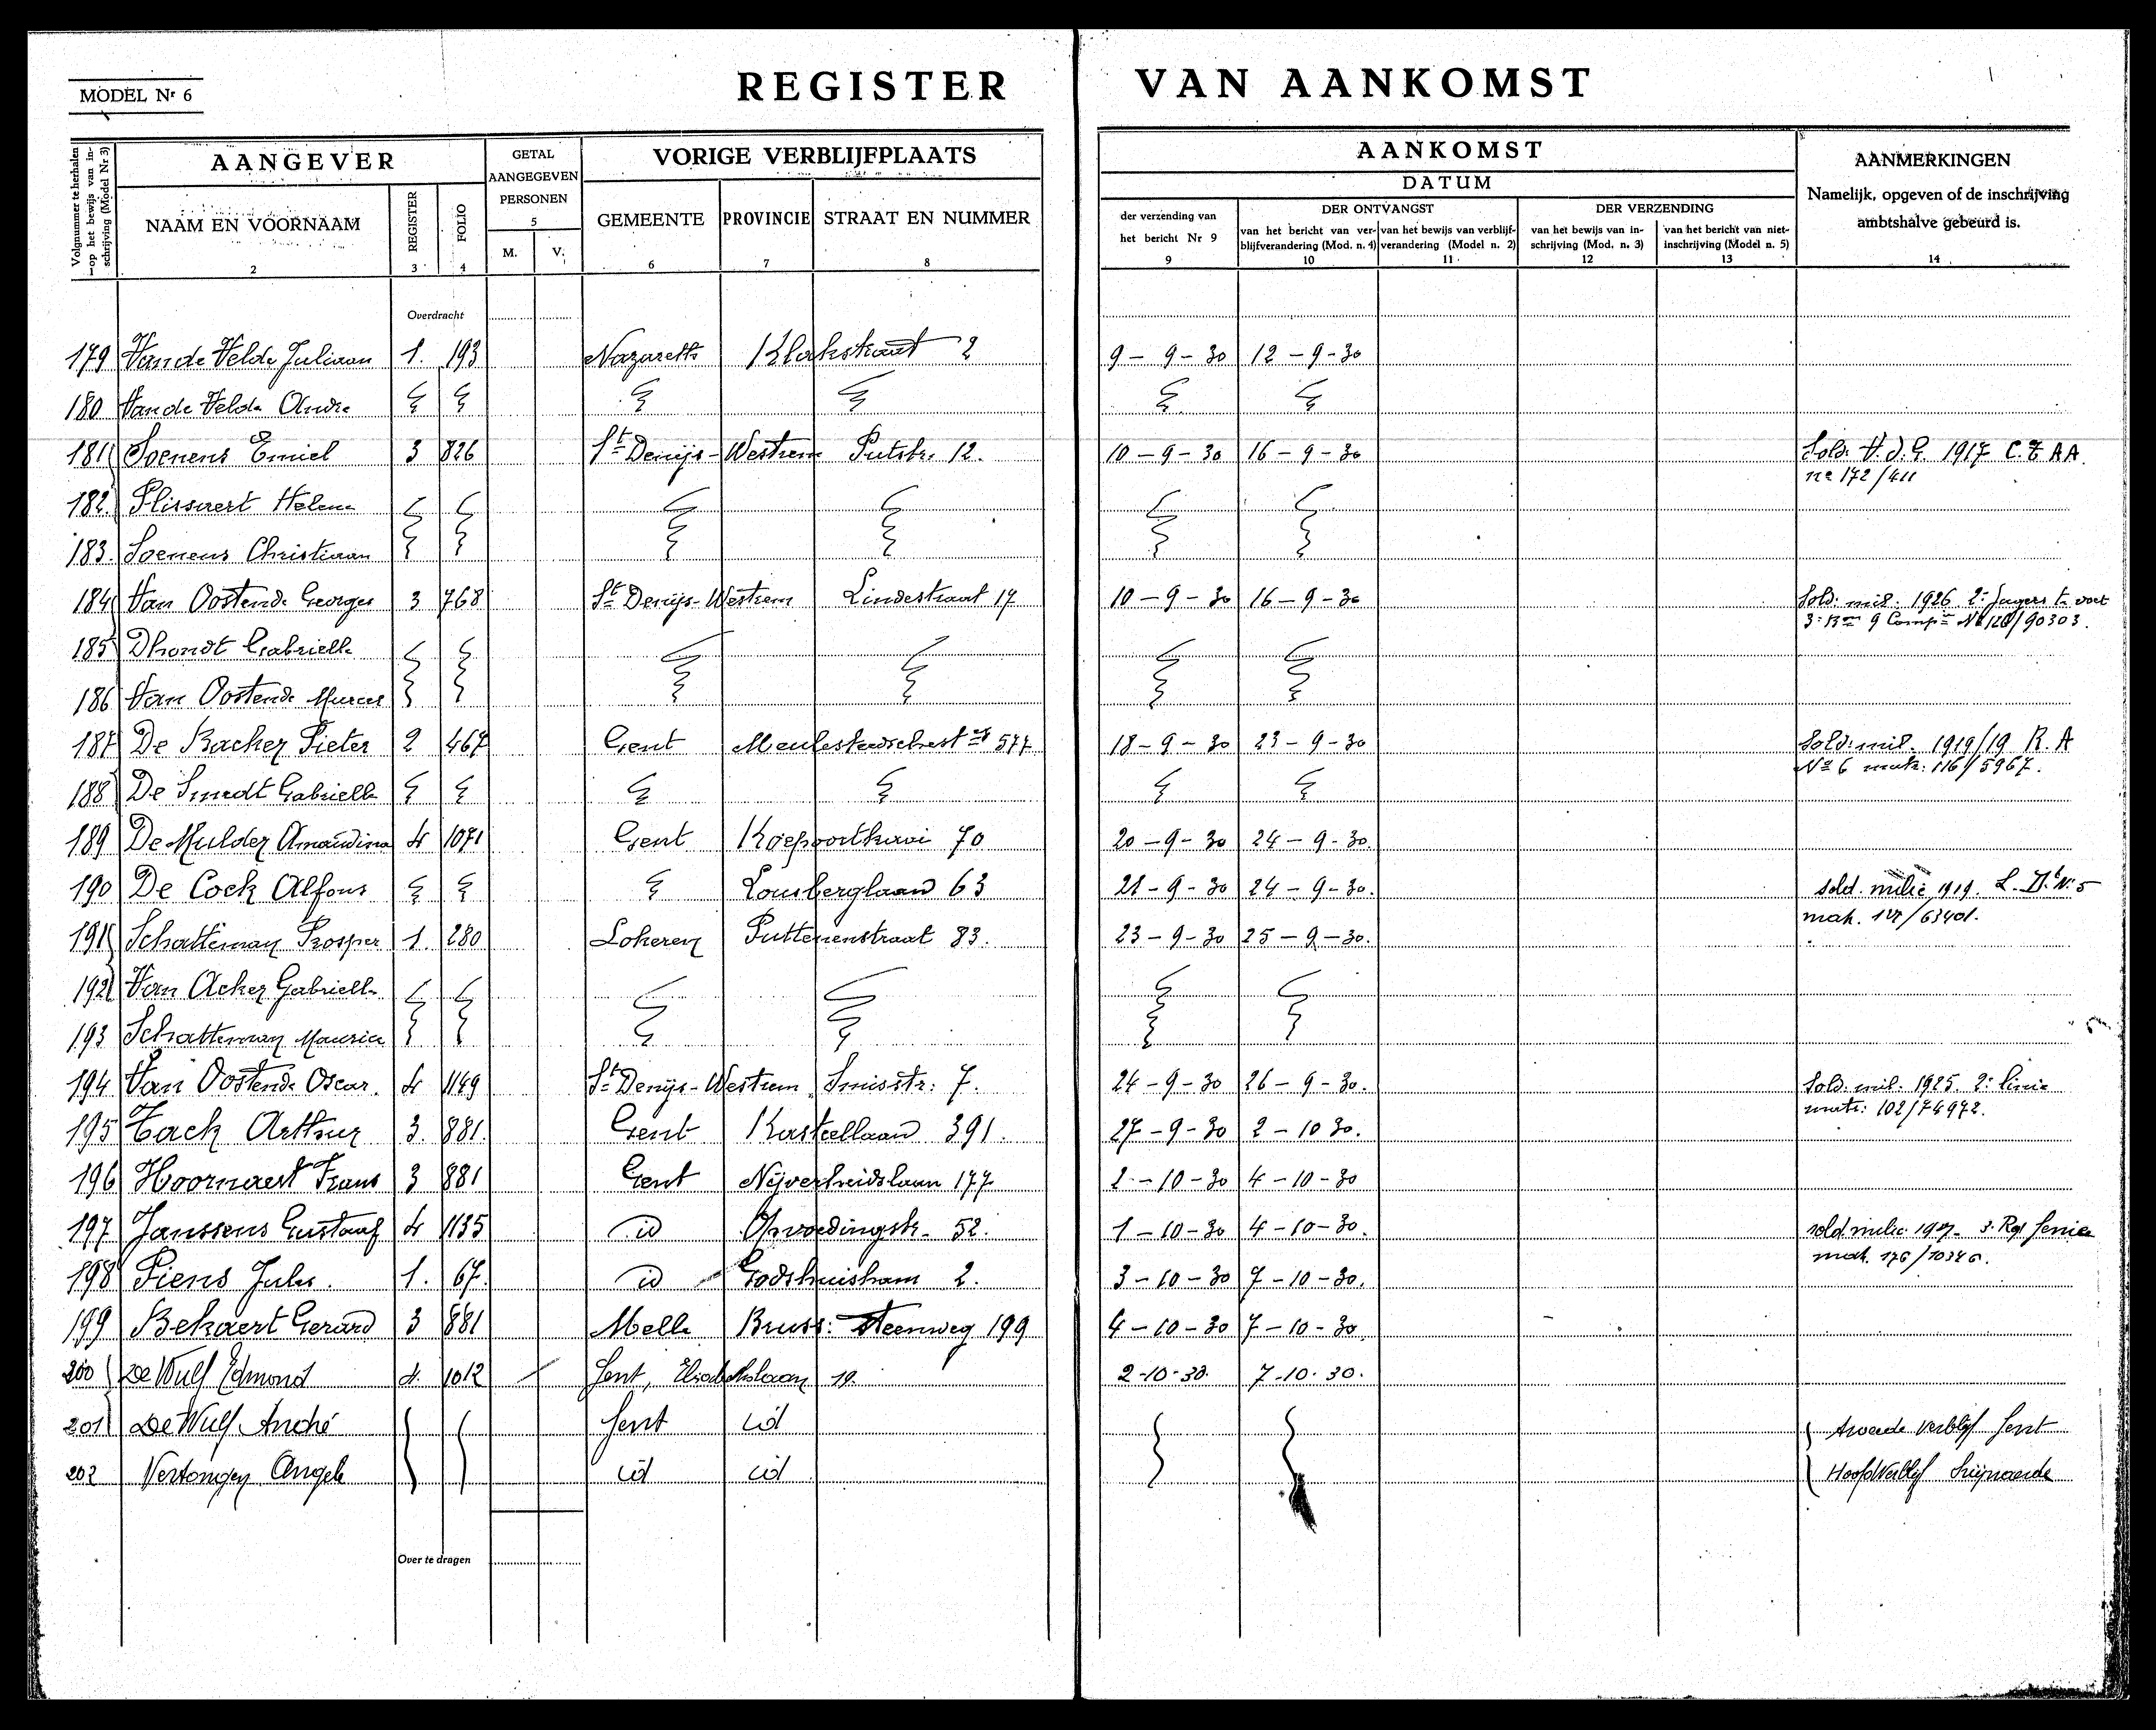 MODEL Nr 6
REGISTER VAN AANKOMST
Volgnummer te herhalen op het bewijs van inschrijving (Model Nr 3)
1
AANGEVER
NAAM EN VOORNAAM
2
REGISTER
3
FOLIO
4
GETAL AANGEGEVEN PERSONEN
5
M. V.
VORIGE VERBLIJFPLAATS
GEMEENTE
6
PROVINCIE
7
STRAAT EN NUMMER
8
AANKOMST
DATUM
der verzending van het bericht Nr 9
9
DER ONTVANGST
van het bericht van verblijfverandering (Mod. n. 4)
10
van het bewijs van verblijfverandering (Model n. 2)
11
DER VERZENDING
van het bewijs van inschrijving (Mod. n. 3)
12
van het bericht van niet-inschrijving (Model n. 5)
13
AANMERKINGEN
Namelijk, opgeven of de inschrijving ambtshalve gebeurd is.
14
Overdracht
179 Van de Velde Juliaan 1. 193 Nazareth Klokstraat 2 9-9-30 12-9-30
180 Van de Velde Andre
181 Soenens Emiel 3 826 St Denijs-Westrem Putstr. 12. 10-9-30 16-9-30 Sold. V.J.G. 1917 C.T.AA.
no 172/411
182. Plissaert Helena
183. Soenens Christiaan
184 Van Oostende Georges 3 768 St Denijs-Westrem Lindestraat 17 10-9-30 16-9-30 Sold: mil. 1926 2e Jagers te voet
3e Bon 9 Compie No 120/90303.
185 Dhondt Gabrielle
186 Van Oostende Marcel
187 De Backer Pieter 2 467 Gent Meulesteedschest wg 577 18-9-30 23-9-30 Sold: mil. 1919/19 R.A
No 6 matr: 116/5967.
188 De Smedt Gabrielle
189 De Mulder Amandina 4 1071 Gent Koepoortkaai 70 20-9-30 24-9-30.
190 De Cock Alfons Lousberglaan 63 21-9-30 24-9-30. sold. milie 1919. L. Dt. No 5
mak. 127/63401.
191 Schatteman Prosper 1. 280 Lokeren Puttenenstraat 83. 23-9-30 25-9-30.
192 Van Acker Gabrielle
193 Schatteman Maurice
194 Van Oostende Oscar. 4 1149 St Denijs-Westrem Smisstr: 7. 24-9-30 26-9-30. Sold. mil. 1925. 2e linie
matr: 102/74972.
195 Tack Arthur 3. 881. Gent Kasteellaan 391. 27-9-30 2-10 30.
196 Hoornaert Frans 3 881 Gent Nijverheidslaan 177 2-10-30 4-10-30
197 Janssens Gustaaf 4 1135 id Opvoedingstr. 52. 1-10-30 4-10-30. sold. milic. 1927. 3. Reg. Genie
mak. 176/10346.
198 Piens Jules. 1. 67. id Godshuisham 2. 3-10-30 7-10-30.
199 Bekaert Gerard 3 881 Melle Bruss: steenweg 199 4-10-30 7-10-30.
200 De Wulf Edmond 4. 1012 Gent, Elisabethlaan 19. 2-10-30. 7-10-30.
201 De Wulf André Gent id Tweede verblijf Gent
202 Vertongen Angele id id Hoofdverblijf Swijnaerde
Over te dragen